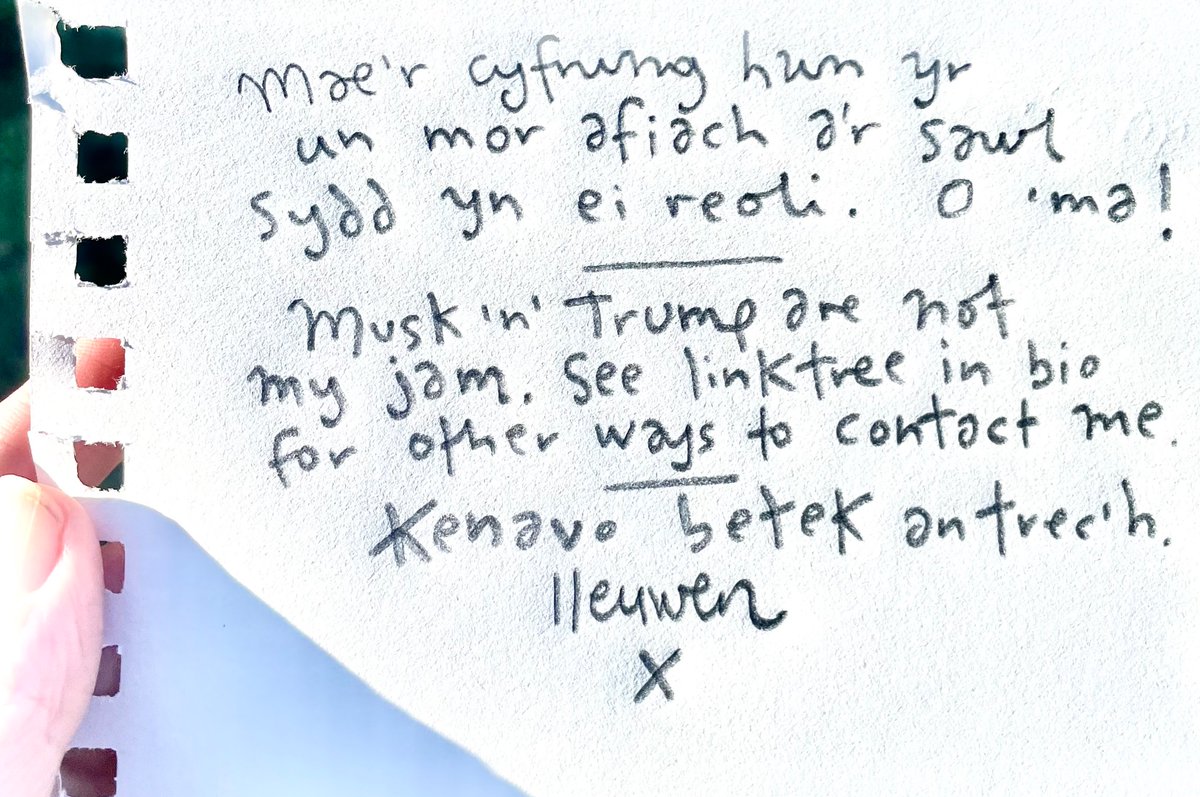 Mae'r cyfrwng hwn yr
un mor afiach a'r sawl
sydd yn ei reoli. O 'ma!
Musk 'n' Trump are not
my jam. See linktree in bio
for other ways to contact me.
Kenavo betek an trec'h.
lleuwen
X